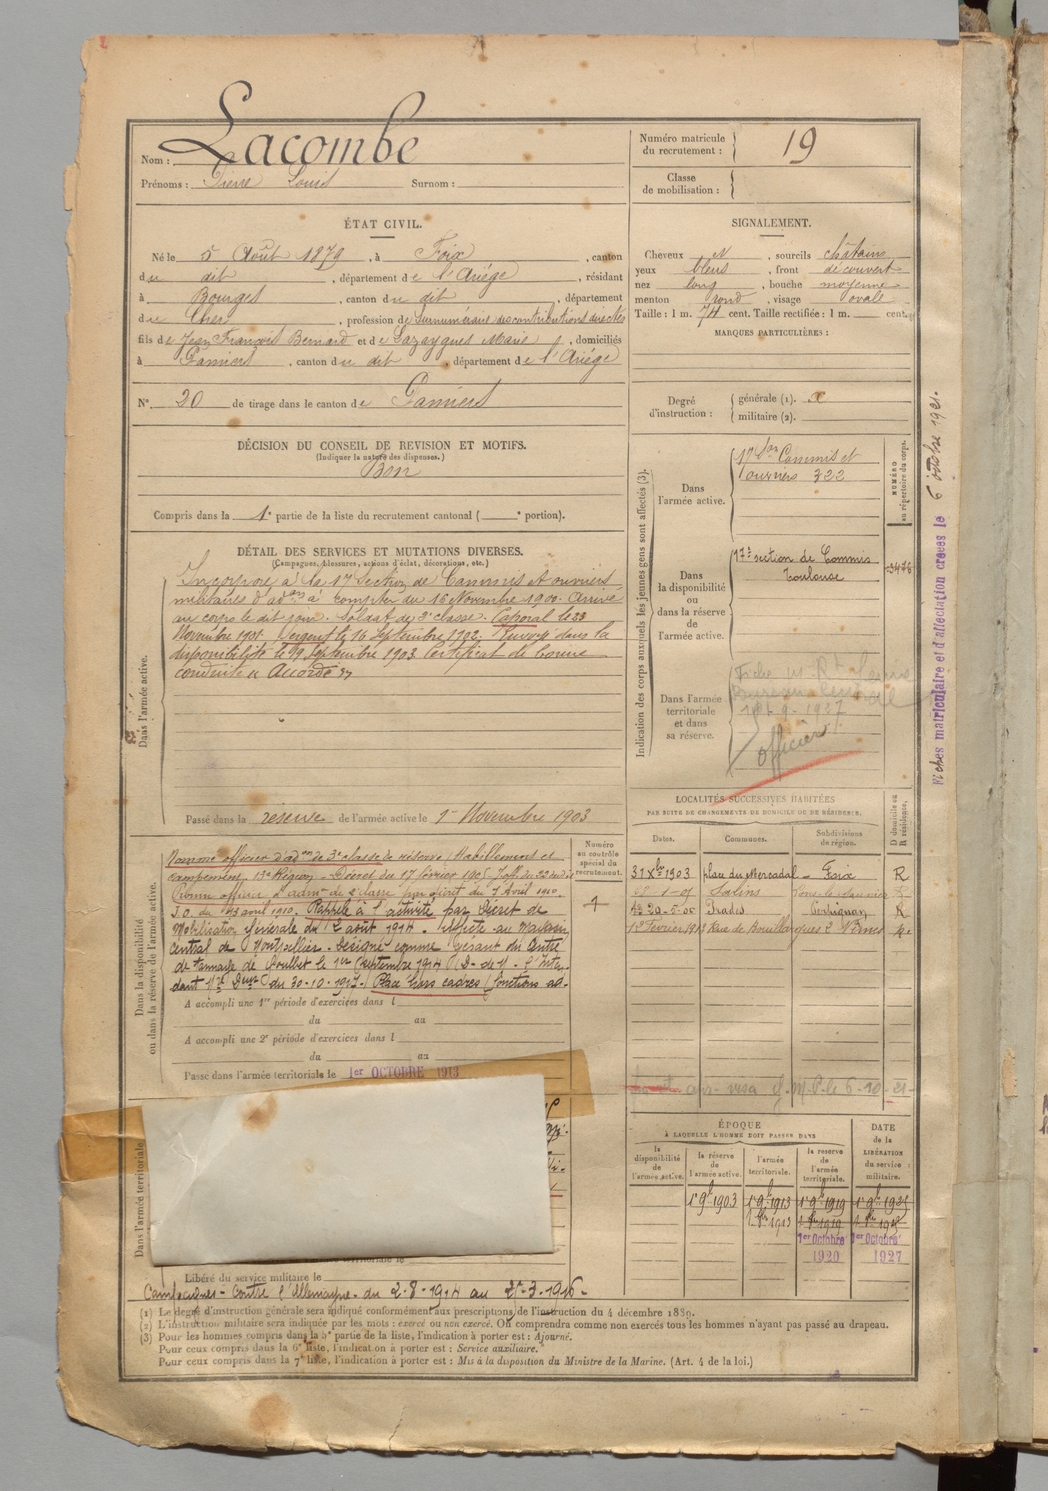 Nom : Lacombe
Prénoms : Pierre Louis Surnom :
Numéro matricule du recrutement : 19
Classe de mobilisation :
ÉTAT CIVIL.
Né le 5 Août 1879, à Foix, canton
du dit, département de l'Ariége, résidant
à Bourges, canton du dit, département
du Cher, profession de Surnuméraire des contributions directes
fils de Jean François Bernard et de Lazaygues Marie, domiciliés
à Pamiers, canton du dit, département de l'Ariége
N° 20 de tirage dans le canton de Pamiers
SIGNALEMENT.
Cheveux N, sourcils châtains
yeux bleus, front découvert
nez long, bouche moyenne
menton rond, visage ovale
Taille : 1 m. 74 cent. Taille rectifiée : 1 m. cent.
MARQUES PARTICULIÈRES :
Degré d'instruction : générale (1).
militaire (2).
DÉCISION DU CONSEIL DE REVISION ET MOTIFS.
(Indiquer la nature des dispenses.)
Bon
Compris dans la 1e partie de la liste du recrutement cantonal ( e portion).
DÉTAIL DES SERVICES ET MUTATIONS DIVERSES.
(Campagnes, blessures, actions d'éclat, décorations, etc.)
Dans l'armée active.
Incorporé à la 17e Section de Commis et ouvriers
militaires d'adon à compter du 16 Novembre 1900. Arrivé
au corps le dit jour. Soldat de 2e classe. Caporal le 23
Novembre 1901. Sergent le 16 Septembre 1902. Envoyé dans la
disponibilité le 19 Septembre 1903. Certificat de bonne
conduite "Accordé"
Passé dans la réserve de l'armée active le 1er Novembre 1903
Indication des corps auxquels les jeunes gens sont affectés (3).
NUMÉRO au répertoire du corps.
Dans l'armée active.
17e Son Commis et
ouvriers 322
Dans la disponibilité ou dans la réserve de l'armée active.
17e section de Commis
Toulouse
3476
Dans l'armée territoriale et dans sa réserve.
Bureau Central
officier
Fiches matriculaire et d'affectation créées le 6 octobre 1921.
Dans la disponibilité ou dans la réserve de l'armée active.
Numéro au contrôle spécial du recrutement.
1
Nommé officier d'adon de 3e classe de réserve (Habillement et
campement) 13e Région - Décret du 17 février 1905
officier d'admon de 2e classe par décret du 7 Avril 1910
J.O. du 13 avril 1910. Rappelé à l'activité par Décret de
Mobilisation générale du 2 août 1914. Affecté au Magasin
central de Montpellier. Désigné comme gérant du Centre
de tannage de le 1er septembre 1914
du 30-10-1917 Placé hors cadres (fonctions ad-
A accompli une 1re période d'exercices dans l
du au
A accompli une 2e période d'exercices dans l
du au
Passé dans l'armée territoriale le 1er OCTOBRE 1913
LOCALITÉS SUCCESSIVES HABITÉES
PAR SUITE DE CHANGEMENTS DE DOMICILE OU DE RÉSIDENCE.
Dates. Communes. Subdivisions de région. D domicile ou R résidence.
31 Xbre 1903 Mercadal Foix R
Salins Lons-le-Saunier R
29-5-06 Prades Perpignan R
1er Février 1914 Rue de Bouillargues 2 Nîmes
visa
Dans l'armée territoriale
ÉPOQUE
À LAQUELLE L'HOMME DOIT PASSER DANS
la disponibilité de l'armée active.
la réserve de l'armée active.
l'armée territoriale.
la réserve de l'armée territoriale.
DATE de la LIBÉRATION du service militaire.
1er 9bre 1903 1er 9bre 1913 1er 9bre 1919 1er 9bre 1925
1er Octobre 1920 1er Octobre 1927
Libéré du service militaire le
Campagnes - contre l'Allemagne - du 2-8-1914 au
(1) Le degré d'instruction générale sera indiqué conformément aux prescriptions de l'instruction du 4 décembre 1889.
(2) L'instruction militaire sera indiquée par les mots : exercé ou non exercé. On comprendra comme non exercés tous les hommes n'ayant pas passé au drapeau.
(3) Pour les hommes compris dans la 5e partie de la liste, l'indication à porter est : Ajourné.
Pour ceux compris dans la 6e liste, l'indication à porter est : Service auxiliaire.
Pour ceux compris dans la 7e liste, l'indication à porter est : Mis à la disposition du Ministre de la Marine. (Art. 4 de la loi.)